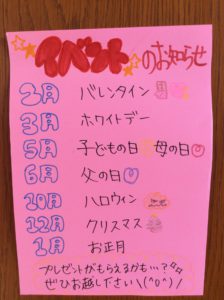 イベントのお知らせ
2月 バレンタイン
3月 ホワイトデー
5月 子どもの日 母の日
6月 父の日
10月 ハロウィン
12月 クリスマス
1月 お正月
プレゼントがもらえるかも…?
ぜひお越しください\(^o^)/